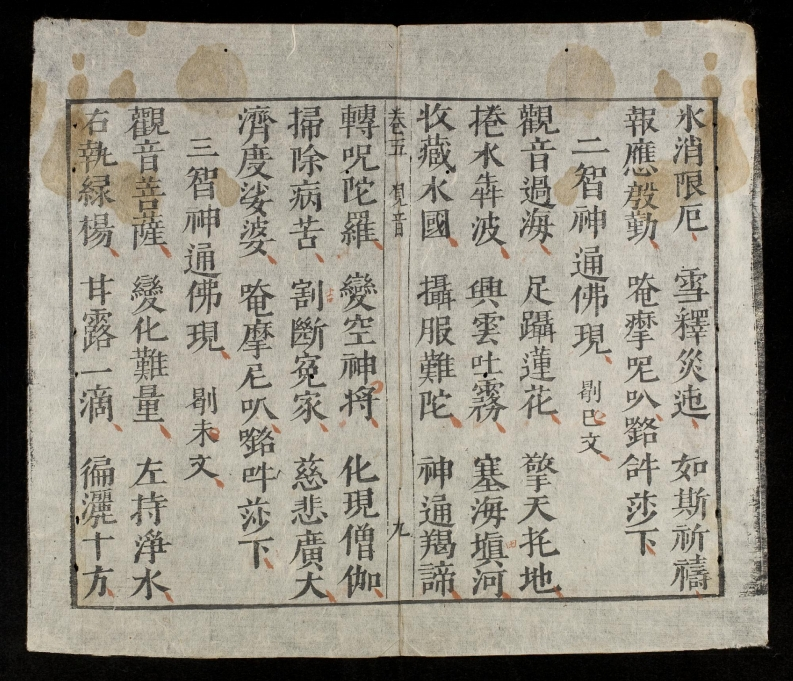 氷消限厄 雪釋災迍 如斯祈禱
報應慇勤 唵摩呢叭㘕吽莎下
二智神通佛現 剔巳文
觀音過海 足躡蓮花 擎天托地
捲水犇波 興雲吐霧 塞海塡河
收藏水國 攝服難陀 神通羯諦
卷五 覌音 九
轉呪陀羅 變空神將 化現僧伽
掃除病苦 割斷寃家 慈悲廣大
濟度娑婆 唵摩尼叭㘕吽莎下
三智神通佛現 剔未文
觀音菩薩 變化難量 左持淨水
右執緑楊 甘露一滴 徧灑十方